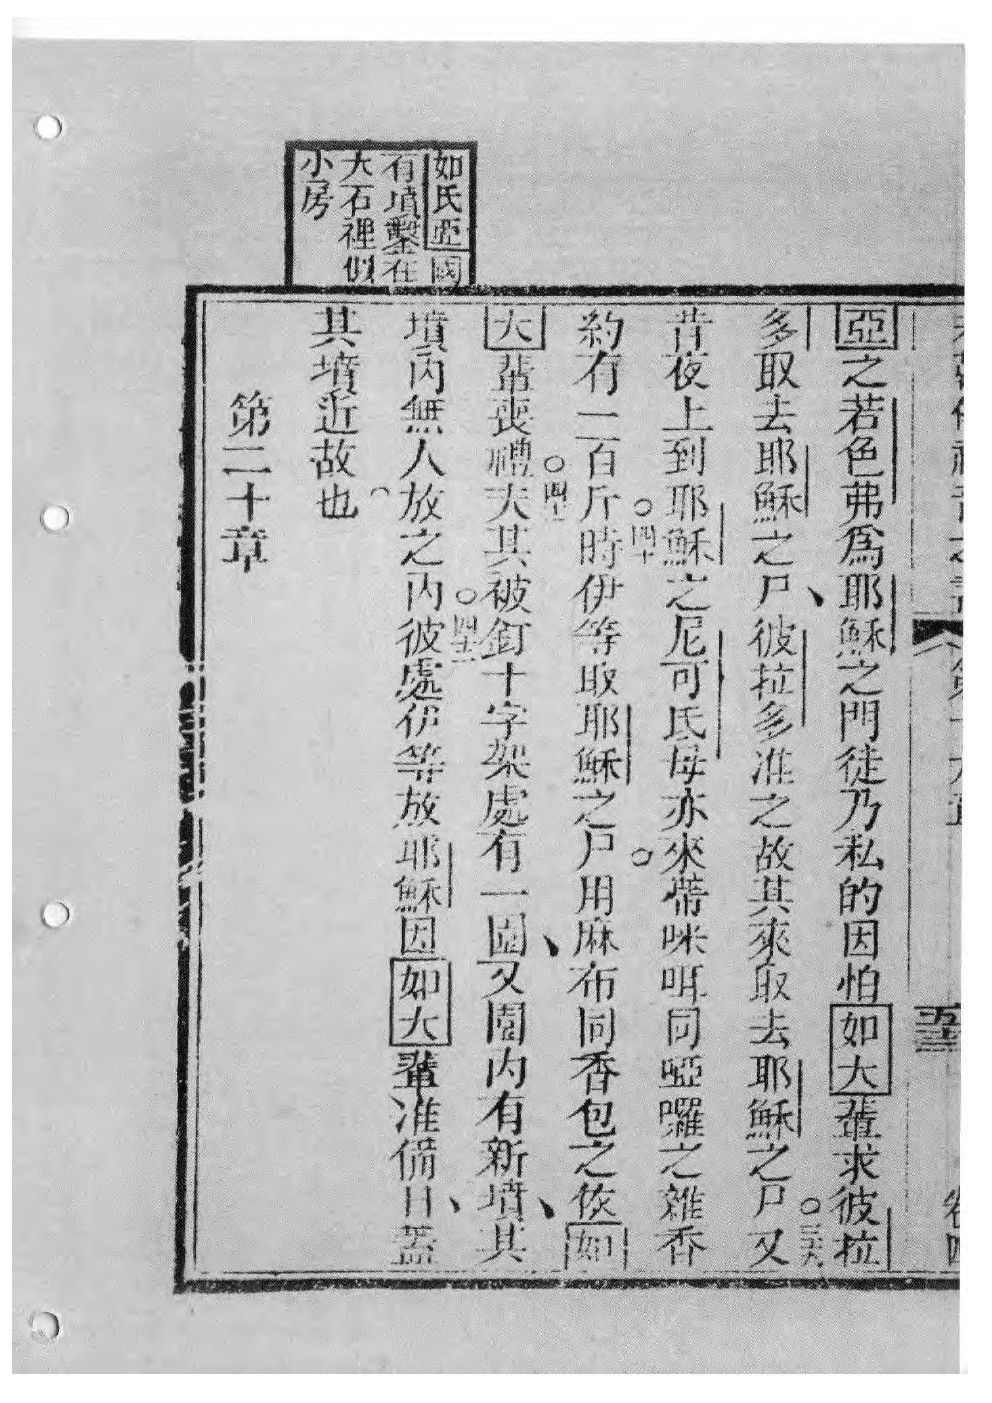 如氏亞國
有墳鑿在
大石裡似
小房
亞之若色弗爲耶穌之門徒乃私的因怕如大輩求彼拉
多取去耶穌之尸、彼拉多准之故其來取去耶穌之尸○三十九又
昔夜上到耶穌○四十之尼可氏母亦來○帶咪咡同啞囉之雜香
約有一百斤時伊等取耶穌之尸用麻布同香包之依如
大輩喪禮○四十一夫其被釘十字架處有一園、又園內有新墳、其
墳內無人放之內○四十二彼處伊等放耶穌因如大輩准備日、蓋
其墳近故也
第二十章